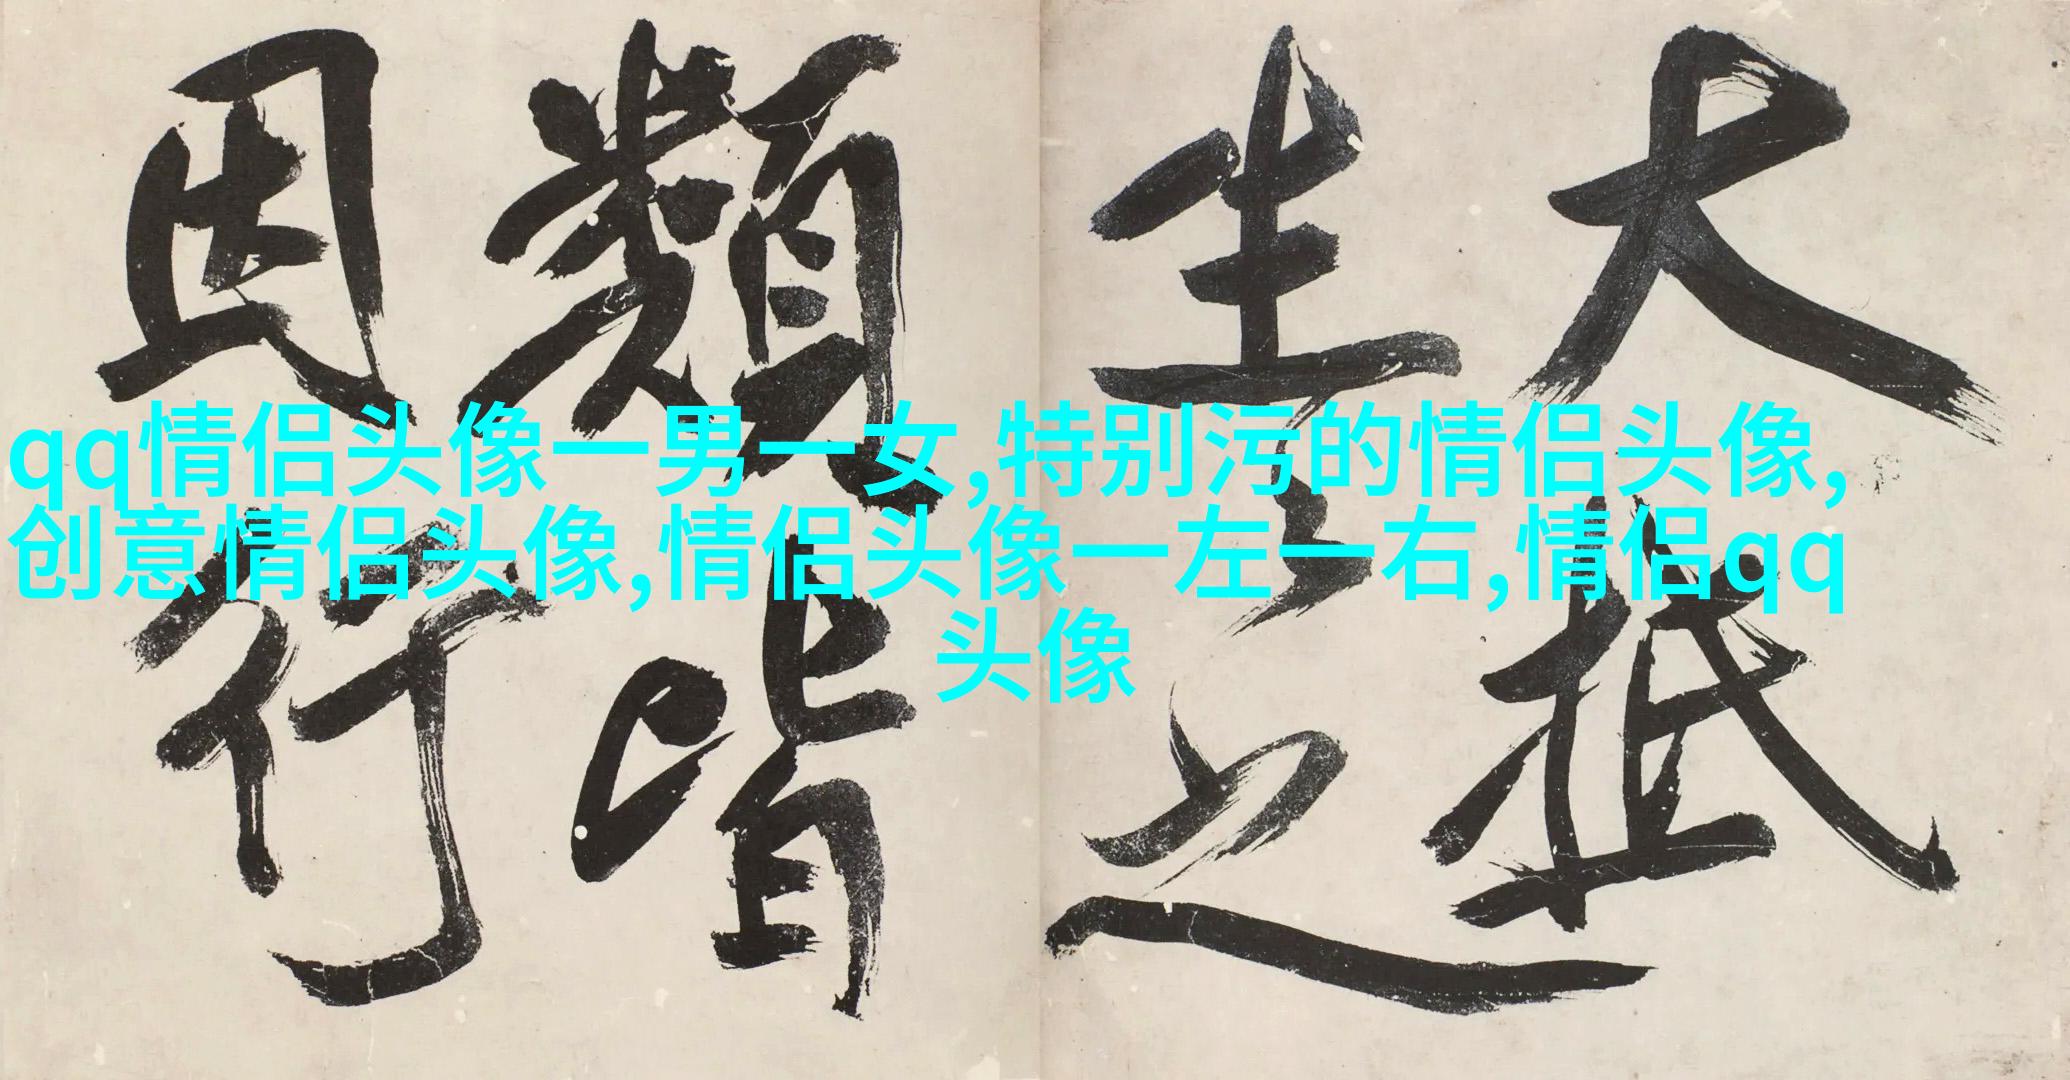 qq情侣头像一男一女,特别污的情侣头像,
创意情侣头像,情侣头像一左一右,情侣qq
头像
大抵
生之
類皆
因行